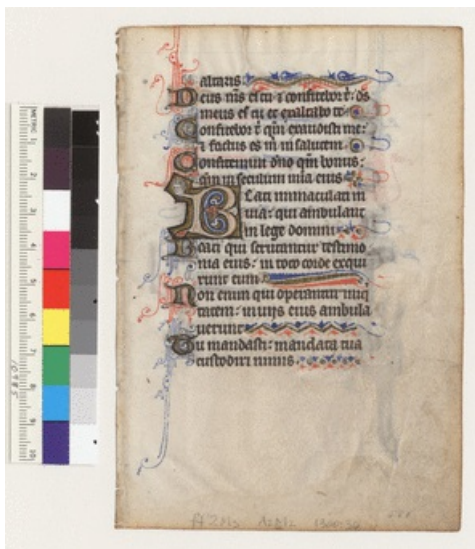 altaris
Deus ms es tu ⁊ confitebor t̄: ds
meus es tu et exaltabo te
Confitebor t̄ qm̄ exaudisti me:
⁊ factus es m̄ in salutem
Confitemini dn̄o qm̄ bonus:
qm̄ in seculum mīa eius
Beati immaculati in
uia: qui ambulant
in lege domini
Beati qui scrutantur testimo
nia eius: in toto corde exqui
runt eum
Non enim qui operantur iniq
tatem: in uiis eius ambula
uerunt
Tu mandasti: mandata tua
custodiri nimis
METRIC 1
2
3
4
5
6
7
8
9
10